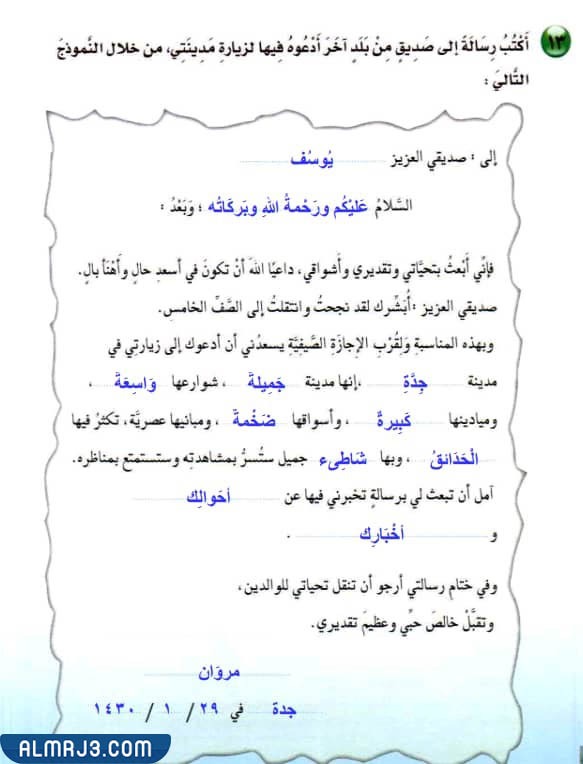 ١٣ أَكْتُبُ رِسَالَةً إلى صَدِيقٍ مِنْ بَلَدٍ آخَرَ أَدْعُوهُ فِيها لزيارةِ مَدِينَتِي، من خلال النَّموذجَ
التَّاليَ :
إلى : صديقي العزيز يُوسُف
السَّلامُ عَلَيْكُم ورَحْمةُ اللهِ وبَركَاتُه ؛ وَبَعْدُ :
فإنِّي أَبْعثُ بتحيَّاتي وتقديري وأَشواقي، داعيًا اللهَ أنْ تكونَ في أسعدِ حالٍ وأَهْنَأ بالٍ.
صديقي العزيز :أُبَشِّرك لقد نجحتُ وانتقلتُ إلى الصَّفِّ الخامسِ.
وبهذه المناسبةِ وَلِقُرْبِ الإجازَةِ الصَّيفِيَّةِ يسعدُني أن أدعوك إلى زيارتِي في
مدينة جِدَّةِ ،إنها مدينة جَمِيلةَ ، شوارعها وَاسِعَةَ ،
وميادينها كَبِيرةٌ ، وأسواقها ضَخْمةَ ، ومبانيها عصريَّة، تكثرُ فيها
الْحَدَائقُ ، وبها شَاطِىء جميل ستُسرُّ بمشاهدتِه وستستمتع بمناظره.
آمل أن تبعث لي برسالةٍ تخبرني فيها عن أحَوالِك
و أخْبَارِك .
وفي ختام رسالتي أرجو أن تنقل تحياتي للوالدين،
وتقبَّلْ خالصَ حبِّي وعظيمَ تقديري.
مروَان
جدة في ٢٩ / ١ / ١٤٣٠
ALMRJ3.COM